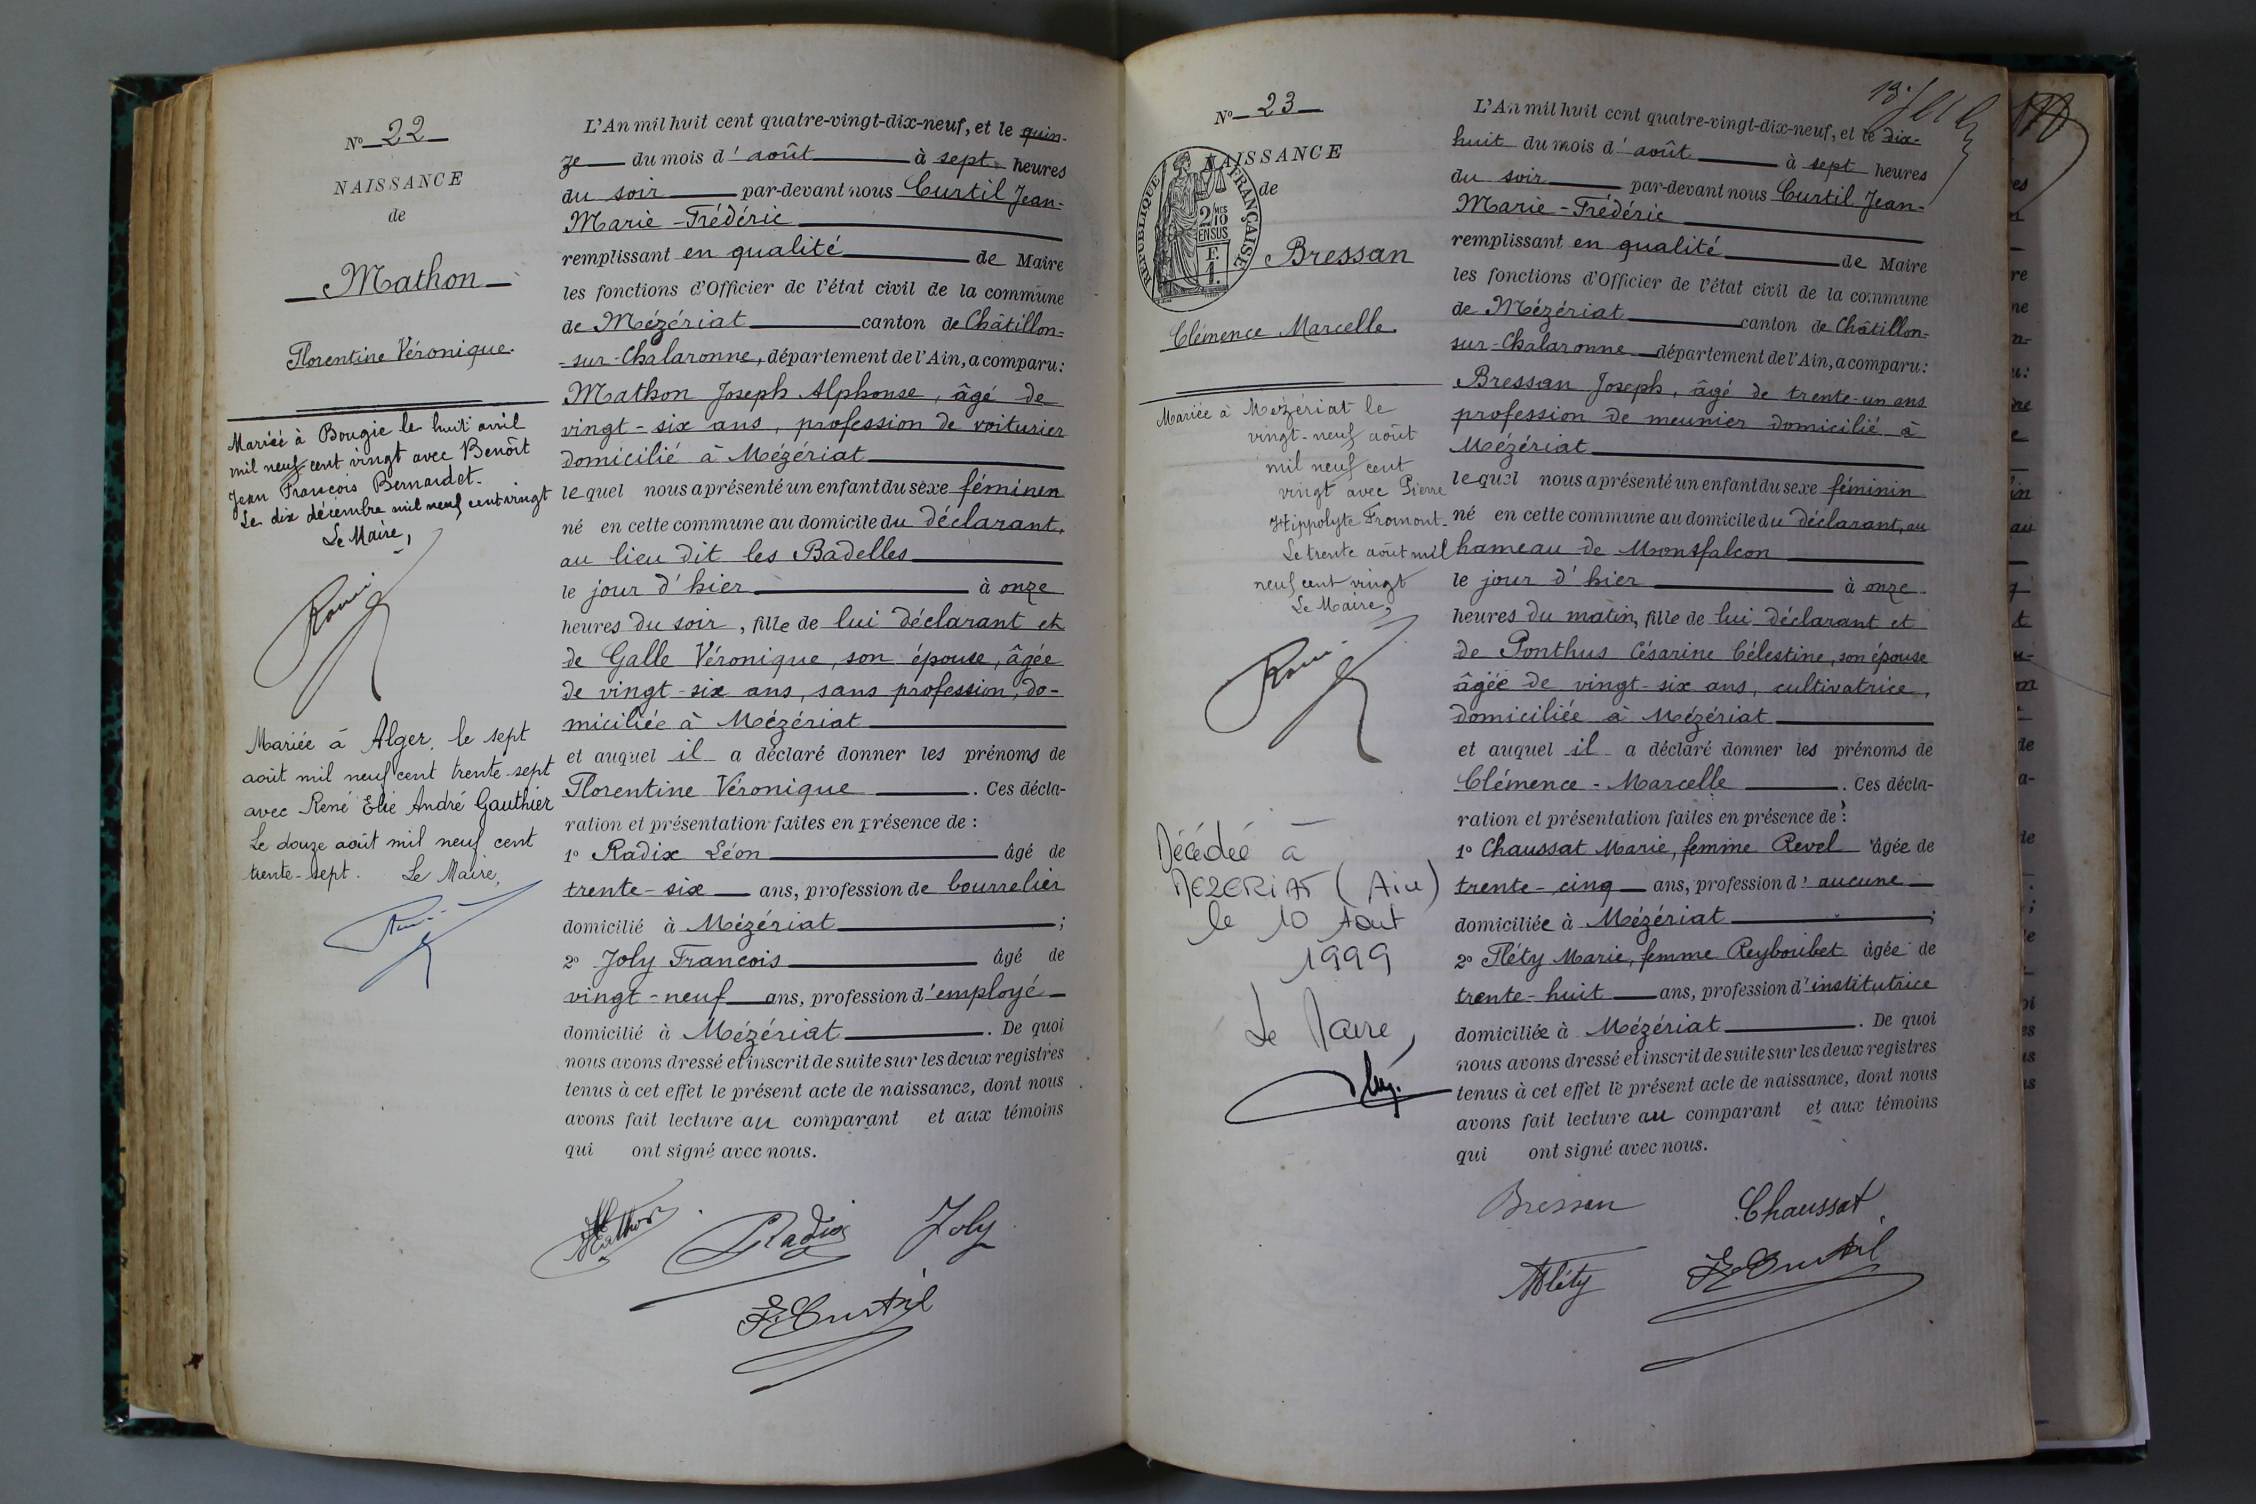 N° 22
NAISSANCE
de
Mathon
Florentine Véronique.
Mariée à Bougie le huit avril
mil neuf cent vingt avec Benoît
Jean François Bernardet.
Le dix décembre mil neuf cent vingt
Le Maire,
Mariée à Alger, le sept
août mil neuf cent trente-sept
avec René Elie André Gauthier
Le douze août mil neuf cent
trente-sept. Le Maire,
L'An mil huit cent quatre-vingt-dix-neuf, et le quin-
ze du mois d'août à sept heures
du soir par-devant nous Curtil Jean-
Marie-Frédéric
remplissant en qualité de Maire
les fonctions d'Officier de l'état civil de la commune
de Mézériat canton de Châtillon-
-sur-Chalaronne, département de l'Ain, a comparu:
Mathon Joseph Alphonse, âgé de
vingt-six ans, profession de voiturier
domicilié à Mézériat
lequel nous a présenté un enfant du sexe féminin
né en cette commune au domicile du déclarant,
au lieu dit les Badelles
le jour d'hier à onze
heures du soir, fille de lui déclarant et
de Galle Véronique, son épouse, âgée
de vingt-six ans, sans profession, do-
miciliée à Mézériat
et auquel il a déclaré donner les prénoms de
Florentine Véronique. Ces décla-
ration et présentation faites en présence de :
1° Radix Léon âgé de
trente-six ans, profession de bourrelier
domicilié à Mézériat ;
2° Joly Francois âgé de
vingt-neuf ans, profession d'employé
domicilié à Mézériat. De quoi
nous avons dressé et inscrit de suite sur les deux registres
tenus à cet effet le présent acte de naissance, dont nous
avons fait lecture au comparant et aux témoins
qui ont signé avec nous.
Mathon Radix Joly
F. Curtil
N° 23
NAISSANCE
de
RÉPUBLIQUE FRANÇAISE
2/10 EN SUS
Bressan
Clémence Marcelle.
Mariée à Mézériat le
vingt-neuf août
mil neuf cent
vingt avec Pierre
Hippolyte Fromont.
Le trente août mil
neuf cent vingt
Le Maire,
Décédée à
MEZERIAT (Ain)
le 10 Aout
1999
Le Maire,
L'An mil huit cent quatre-vingt-dix-neuf, et le dix-
huit du mois d'août à sept heures
du soir par-devant nous Curtil Jean-
Marie-Frédéric
remplissant en qualité de Maire
les fonctions d'Officier de l'état civil de la commune
de Mézériat canton de Châtillon-
sur-Chalaronne département de l'Ain, a comparu:
Bressan Joseph, âgé de trente-un ans
profession de meunier domicilié à
Mézériat
lequel nous a présenté un enfant du sexe féminin
né en cette commune au domicile du déclarant, au
hameau de Montfalcon
le jour d'hier à onze
heures du matin, fille de lui déclarant et
de Ponthus Césarine Célestine, son épouse
âgée de vingt-six ans, cultivatrice,
domiciliée à Mézériat
et auquel il a déclaré donner les prénoms de
Clémence-Marcelle. Ces décla-
ration et présentation faites en présence de :
1° Chaussat Marie, femme Revel âgée de
trente-cinq ans, profession d'aucune
domiciliée à Mézériat ;
2° Fléty Marie, femme Reyboubet âgée de
trente-huit ans, profession d'institutrice
domiciliée à Mézériat. De quoi
nous avons dressé et inscrit de suite sur les deux registres
tenus à cet effet le présent acte de naissance, dont nous
avons fait lecture au comparant et aux témoins
qui ont signé avec nous.
Bressan Chaussat
Fléty F. Curtil